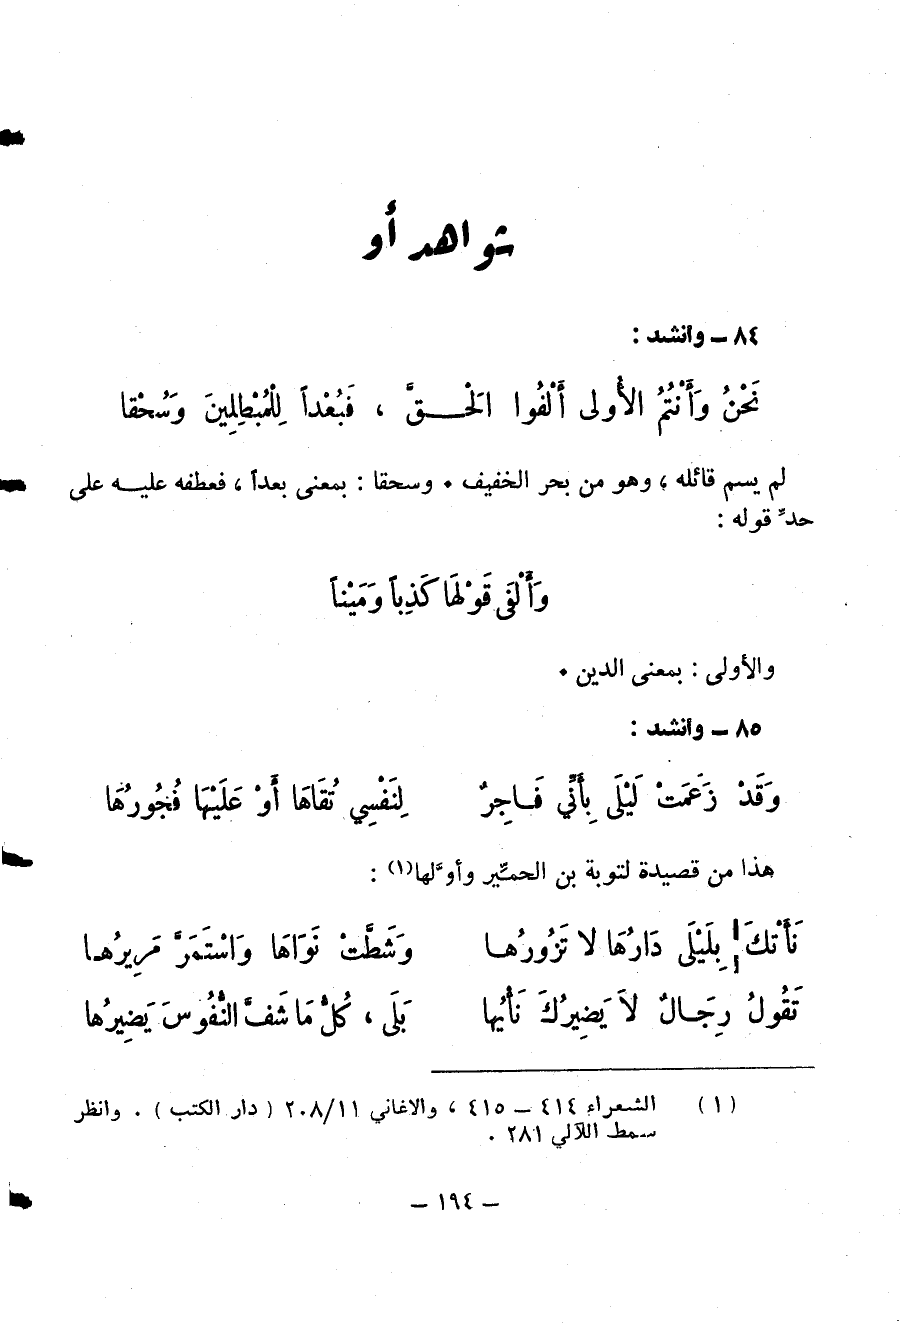 شواهد أو
٨٤ ـ وانشد :
نَحْنُ وَأَنْتُمُ الأُولى أَلْفُوا الْحَـــقَّ ، فَبُعْداً لِلْمُبْطِلِينَ وَسُحْقا
لم يسم قائله ، وهو من بحر الخفيف ٠ وسحقا : بمعنى بعداً ، فعطفه عليـــه على
حدِّ قوله :
وَأَلْفَى قَوْلَهَا كَذِباً وَمَيْناً
والأولى : بمعنى الدين ٠
٨٥ ـ وانشد :
وَقَدْ زَعَمَتْ لَيْلَى بِأَنِّي فَـاجِرٌ لِنَفْسِي تُقَاهَا أَوْ عَلَيْهَا فُجُورُهَا
هذا من قصيدة لتوبة بن الحميِّر وأوَّلها(١) :
نَأَتْكَ بِلَيْلَى دَارُهَا لا تَزُورُهـا وَشَطَّتْ نَوَاهَا وَاسْتَمَرَّ مَرِيرُهـا
تَقُولُ رِجَـالٌ لاَ يَضِيرُكَ نَأْيُها بَلَى ، كُلُّ مَا شَفَّ النُّفُوسَ يَضِيرُها
(١) الشعراء ٤١٤ ـ ٤١٥ ، والاغاني ٢٠٨/١١ ( دار الكتب ) . وانظر
سمط اللآلي ٢٨١ .
ـ ١٩٤ ـ